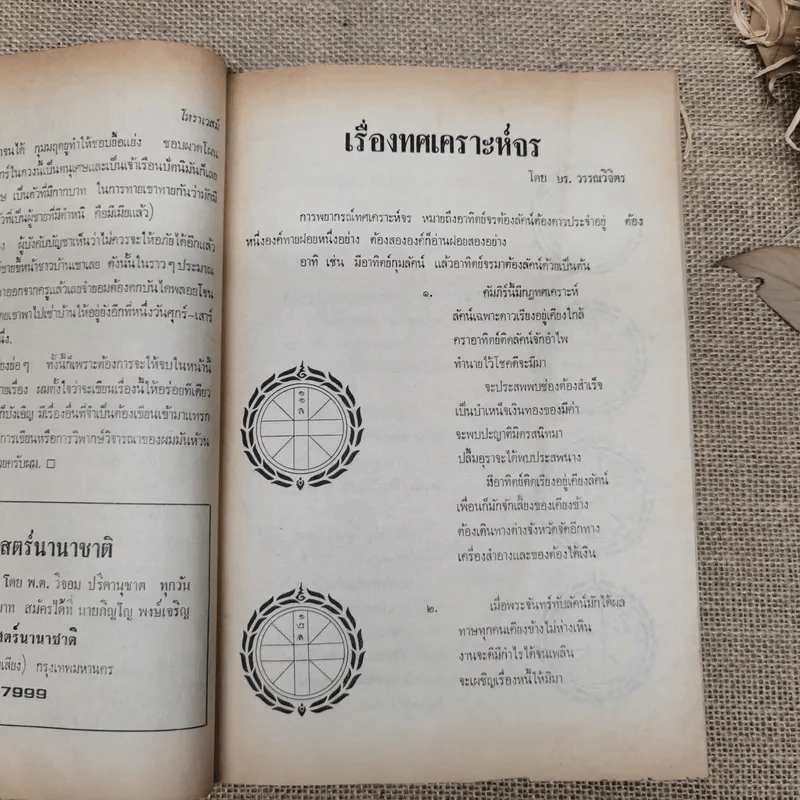 โหราเวสม์
จนได้ กุมมฤตยูทำให้ชอบยื้อแย่ง ชอบผาดโผน
ร์ในดวงนี้เป็นตนุเศษและเป็นเจ้าเรือนปัตนิมันก็เลย
ษ เป็นตัวที่มีกากบาท ในการทายเขาทายกันว่ามักมี
ที่เป็นผู้ชายที่มีตำหนิ คือมีเมียแล้ว)
ผู้บังคับบัญชาเห็นว่าไม่ควรจะให้อภัยได้อีกแล้ว
ขายขี้หน้าชาวบ้านเขาเลย ดังนั้นในราวๆ ประมาณ
าออกจากครูแล้วเลยจำยอมต้องตกบันไดพลอยโจน
ยเขาพาไปเช่าบ้านให้อยู่ยังอีกที่หนึ่งวันศุกร์-เสาร์
ึ่ง.
ยงย่อๆ ทั้งนี้ก็เพราะต้องการจะให้จบในหน้านี้
ายเรื่อง ผมตั้งใจว่าจะเขียนเรื่องนี้ให้อร่อยทีเดียว
ก็บังเอิญ มีเรื่องอื่นที่จำเป็นต้องเขียนเข้ามาแทรก
การเขียนหรือการวิพากษ์วิจารณ์ของผมมันห้วน
ยครับผม. □
สตร์นานาชาติ
โดย พ.ต. วิจอม ปริตานุชาต ทุกวัน
บาท สมัครได้ที่ นายภิญโญ พงษ์เจริญ
สตร์นานาชาติ
เสียง) กรุงเทพมหานคร
7999
เรื่องทศเคราะห์จร
โดย บร. วรรณวิจิตร
การพยากรณ์ทศเคราะห์จร หมายถึงอาทิตย์จรต้องลัคน์ต้องดาวประจำอยู่ ต้อง
หนึ่งองค์ทายฝอยหนึ่งอย่าง ต้องสององค์ก็อ่านฝอยสองอย่าง
อาทิ เช่น มีอาทิตย์กุมลัคน์ แล้วอาทิตย์จรมาต้องลัคน์ด้วยเป็นต้น
๑. คัมภีร์นี้มีกฎทศเคราะห์
ลัคน์เฉพาะดาวเรียงอยู่เคียงใกล้
คราอาทิตย์ติดลัคน์จักอำไพ
ทำนายไว้โชคดีจะมีมา
จะประสพพบช่องต้องสำเร็จ
เป็นบำเหน็จเงินทองของมีค่า
จะพบปะญาติมิตรสนิทมา
ปลื้มอุราจะได้พบประสพนาง
มีอาทิตย์ติดเรียงอยู่เคียงลัคน์
เพื่อนก็มักจักเลี้ยงของเคียงข้าง
ต้องเดินทางต่างจังหวัดจัดอีกทาง
เครื่องสำอางและของต้องได้เงิน
๒. เมื่อพระจันทร์ทับลัคน์มักได้ผล
ทาษทุกคนเคียงข้างไม่ห่างเหิน
งานจะดีมีกำไรได้จนเพลิน
จะเผชิญเรื่องหนี้ให้มีมา